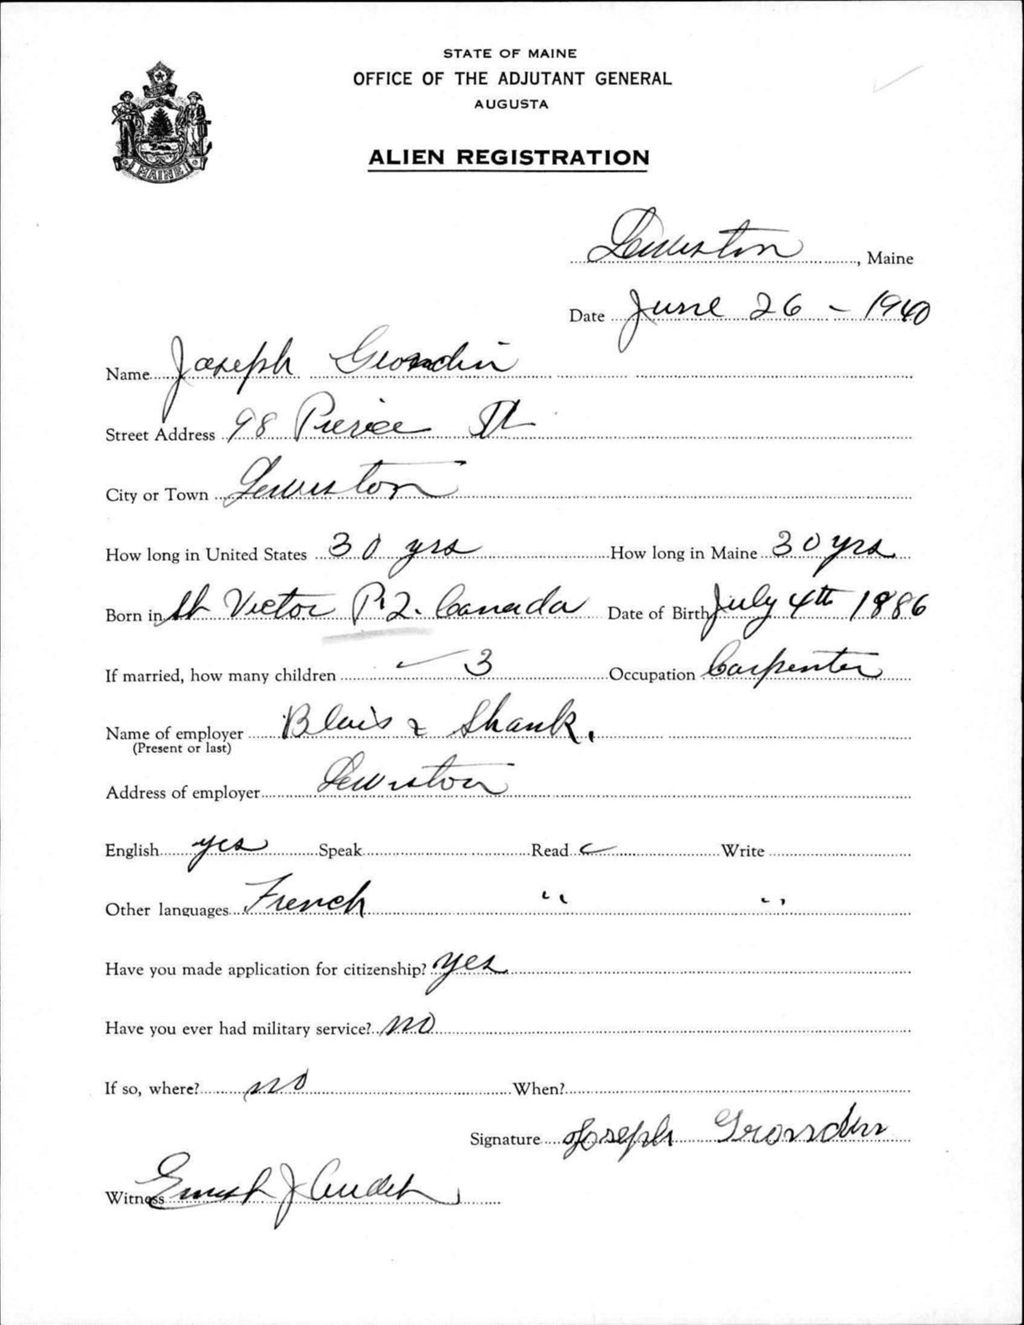 STATE OF MAINE
OFFICE OF THE ADJUTANT GENERAL
AUGUSTA
ALIEN REGISTRATION
MAINE
Lewiston, Maine
Date June 26 - 1940
Name Joseph Grondin
Street Address 98 Pierce St
City or Town Lewiston
How long in United States 30 yrs How long in Maine 30 yrs
Born in St Victor P.Q. Canada Date of Birth July 4th 1886
If married, how many children 3 Occupation Carpenter
Name of employer Blais & Shank.
(Present or last)
Address of employer Lewiston
English yes Speak Read Write
Other languages French " "
Have you made application for citizenship? yes
Have you ever had military service? no
If so, where? no When?
Signature Joseph Grondin
Witness Ernest J Audet